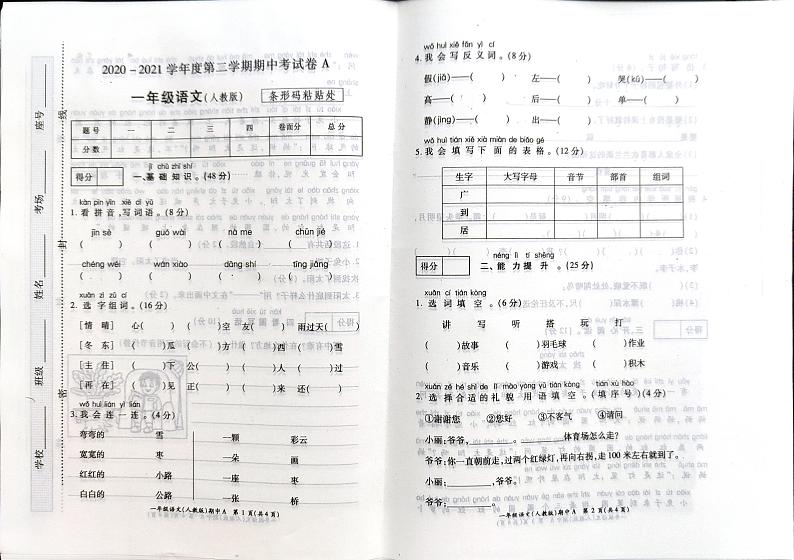 2020－2021学年度第二学期期中考试卷 A
一年级语文(人教版) 条形码粘贴处
题号 一 二 三 四 卷面分 总分
分数
得分
jī chǔ zhī shi
一、基础知识。(48分)
kàn pīn yīn xiě cí yǔ
1. 看拼音,写词语。(8分)
jīn sè guó wài nà me chūn jiē
( ) ( ) ( ) ( )
chéng wéi wán xiào dāng shí tíng jiāng
( ) ( ) ( ) ( )
xuǎn zì zǔ cí
2. 选字组词。(16分)
[情 晴] 心( ) ( )空 友( ) 雨过天( )
[冬 东] ( )瓜 ( )方 ( )西 ( )雪
[主 住] ( )下 公( ) ( )人 ( )过
[再 在] ( )见 正( ) ( )来 还( )
wǒ huì lián yì lián
3. 我会连一连。(4分)
弯弯的 雪 一颗 彩云
宽宽的 枣 一朵 画
红红的 公路 一座 枣
白白的 公路 一张 桥
一年级语文(人教版)期中A 第1页(共4页)
学校 班级 姓名 考场 座号
密 封 线
wǒ huì xiě fǎn yì cí
4. 我会写反义词。(8分)
假(jiǎ)——( ) 左——( ) 哭(kū)——( )
高——( ) 后——( ) 单——( )
静(jìng)——( ) 出——( )
wǒ huì tián xiě xià miàn de biǎo gé
5. 我会填写下面的表格。(12分)
生字 大写字母 音节 部首 组词
广
到
居
得分
néng lì tí shēng
二、能力提升。(25分)
xuǎn cí tián kòng
1. 选词填空。(6分)
讲 写 听 搭 玩 打
( )故事 ( )羽毛球 ( )作业
( )音乐 ( )游戏 ( )积木
xuǎn zé hé shì de lǐ mào yòng yǔ tián kòng tián xù hào
2. 选择合适的礼貌用语填空。(填序号)(4分)
①谢谢您 ②您好 ③不客气 ④请问
小丽:爷爷,______。______体育场怎么走?
爷爷:你一直朝前走,过两个红绿灯,再向右拐,走100米左右就到了。
小丽:______,爷爷。
爷爷:______。
一年级语文(人教版)期中A 第2页(共4页)